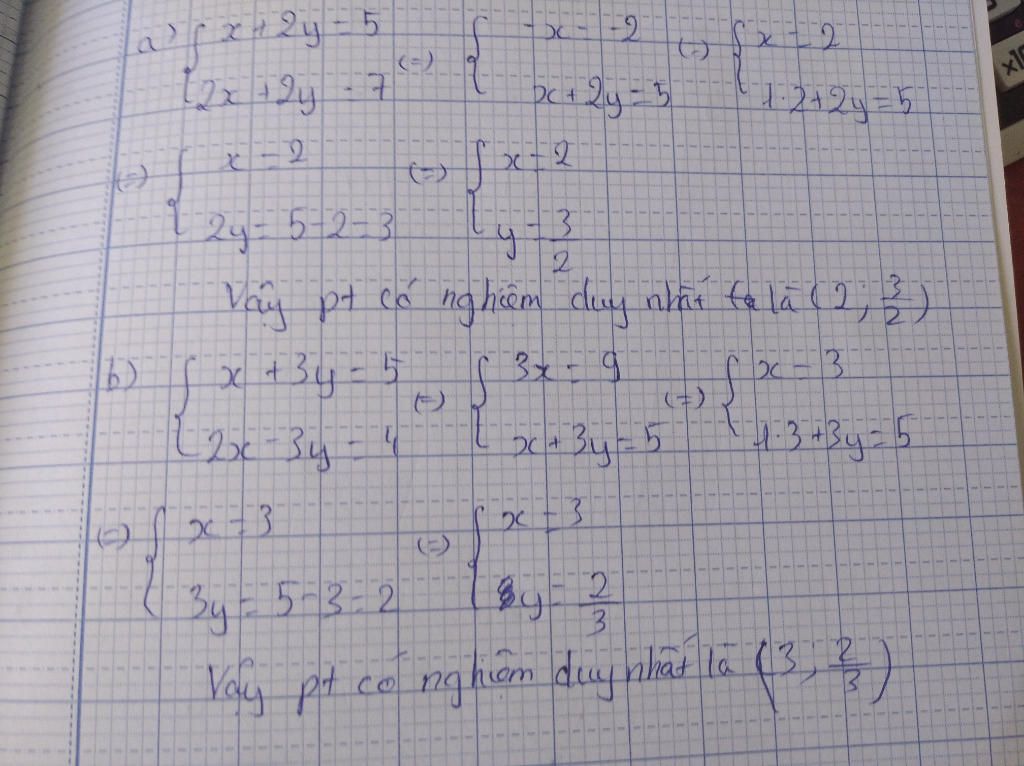 a) { x + 2y = 5 (=) { -x = -2 (=) { x = 2
2x + 2y = 7 x + 2y = 5 1·2 + 2y = 5
(=) { x = 2 (=) { x = 2
2y = 5 - 2 = 3 y = 3/2
Vậy pt có nghiệm duy nhất là (2; 3/2)
b) { x + 3y = 5 (=) { 3x = 9 (=) { x = 3
2x - 3y = 4 x + 3y = 5 1·3 + 3y = 5
(=) { x = 3 (=) { x = 3
3y = 5 - 3 = 2 y = 2/3
Vậy pt có nghiệm duy nhất là (3; 2/3)